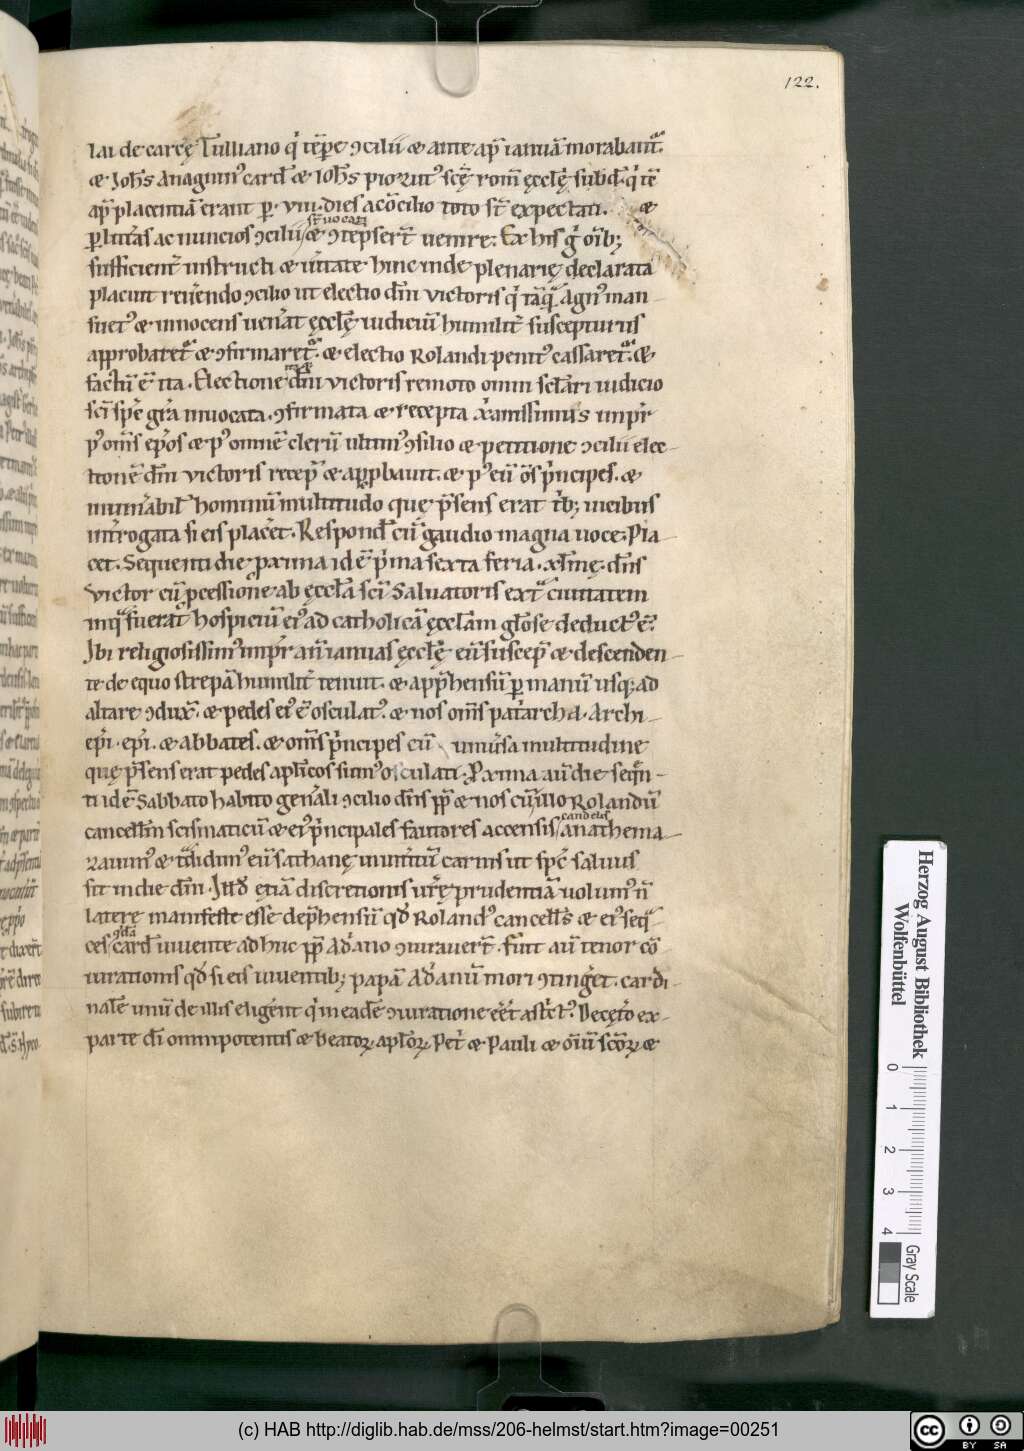 122.
lai de carcę̄ Tulliano q' tēpe ꝯcilii ⁊ ante ap̄ ianuā morabant᷑.
⁊ Joh̄s Anagnin' card̄ ⁊ ioh̄s piozut' scę̄ rom̄ ęcclę̄ subd̄. q' tē
ap̄ placentiā erant ꝑ. viii. dies a cōcilio toto st̄ expectati. ⁊
ꝑ litt̄as ac nuncios ꝯcilii st̄ uocati ⁊ ꝯtēpsert̄ uenire. Ex his g̊ oīb;
sufficient̄ instructi ⁊ ūitate hinc inde plenarię declarata
placuit reuēndo ꝯcilio ut electio dn̄i victoris q' tāq̄ Agn' man-
suet' ⁊ innocens uenāt ęcclę̄ iudiciū humilit̄ suscepturus
approbaret᷑ ⁊ ꝯfirmaret᷑. ⁊ electio Rolandi penit' cassaret᷑. ⁊
factū ē ita. Electione dn̄i victoris remoto omni sc̄lari iudicio
sc̄i sp̄c grā inuocata. ꝯfirmata ⁊ recepta x̄anissimus imp̄r
p' om̄s ep̄os ⁊ p' omnē clerū ultim' ꝯsilio ⁊ petitione ꝯcilii elec-
tionē dn̄i victoris recep̄ ⁊ app̄bauit. ⁊ p' eū ōs p̄ncipes. ⁊
innum̄abil' hominū multitudo que p̄sens erat t̄b; uicibus
int̄rogata si eis placēt. Respond̄ cū gaudio magna uoce. Pla-
cet. Sequenti die px̄ima id ē p'ma sexta feria. xl̄mę. dn̄s
victor cū p̄cessione ab ęcclā sc̄i Saluatoris ext᷑ ciuitatem
in q̄ fuerat hospiciū ei' ad catholicā ęcclām gl̄ose deduct' ē.
Jbi religiosissim' imp̄r an̄ ianuas ęcclę̄ eū suscep̄ ⁊ descenden-
te de equo strepā humilit̄ tenuit. ⁊ app̄hensū ꝑ manū usq; ad
altare ꝯdux̄. ⁊ pedes ei' ē osculat'. ⁊ nos om̄s pat'archa. Archi-
ep̄i. ep̄i. ⁊ Abbates. ⁊ om̄s p̄ncipes cū uniūsa multitudine
quę p̄sens erat pedes apl̄icos sum' osculati. Px̄ima au' die seq̄n-
ti id ē Sabbato habito gen̄ali ꝯcilio dn̄s pp̄ ⁊ nos cū illo Rolandū
cancell̄m scismaticū ⁊ ei' p̄ncipales fautores accensis candelis anathema-
zauim' ⁊ t̄didim' eū sathanę in int̄itū carnis ut sp̄c saluus
sit in die dn̄i. Jll̄d etiā discretionis ūrę prudentiā uolum' n̄
latere manifeste esse dep̄hensū qd̄ Roland' cancell̄s ⁊ ei' seq̄-
ces q̄dā card̄ uiuente adhuc pp̄ Ad'ano ꝯiurauert̄. Fuit au' tenor cō-
iurationis qd̄ si eis uiuentib; papā Ad'anū mori ꝯtinḡet. cardi-
nalē unū de illis eligēnt q' in eadē ꝯiuratione eēt ast̄ct'. Decęt̄o ex
parte dī omnipotentis ⁊ beatoꝝ aplōꝝ. Pet' ⁊ Pauli ⁊ oīū sc̄oꝝ ⁊
Herzog August Bibliothek
Wolfenbüttel
0 1 2 3 4
Gray Scale
(c) HAB http://diglib.hab.de/mss/206-helmst/start.htm?image=00251
cc BY SA